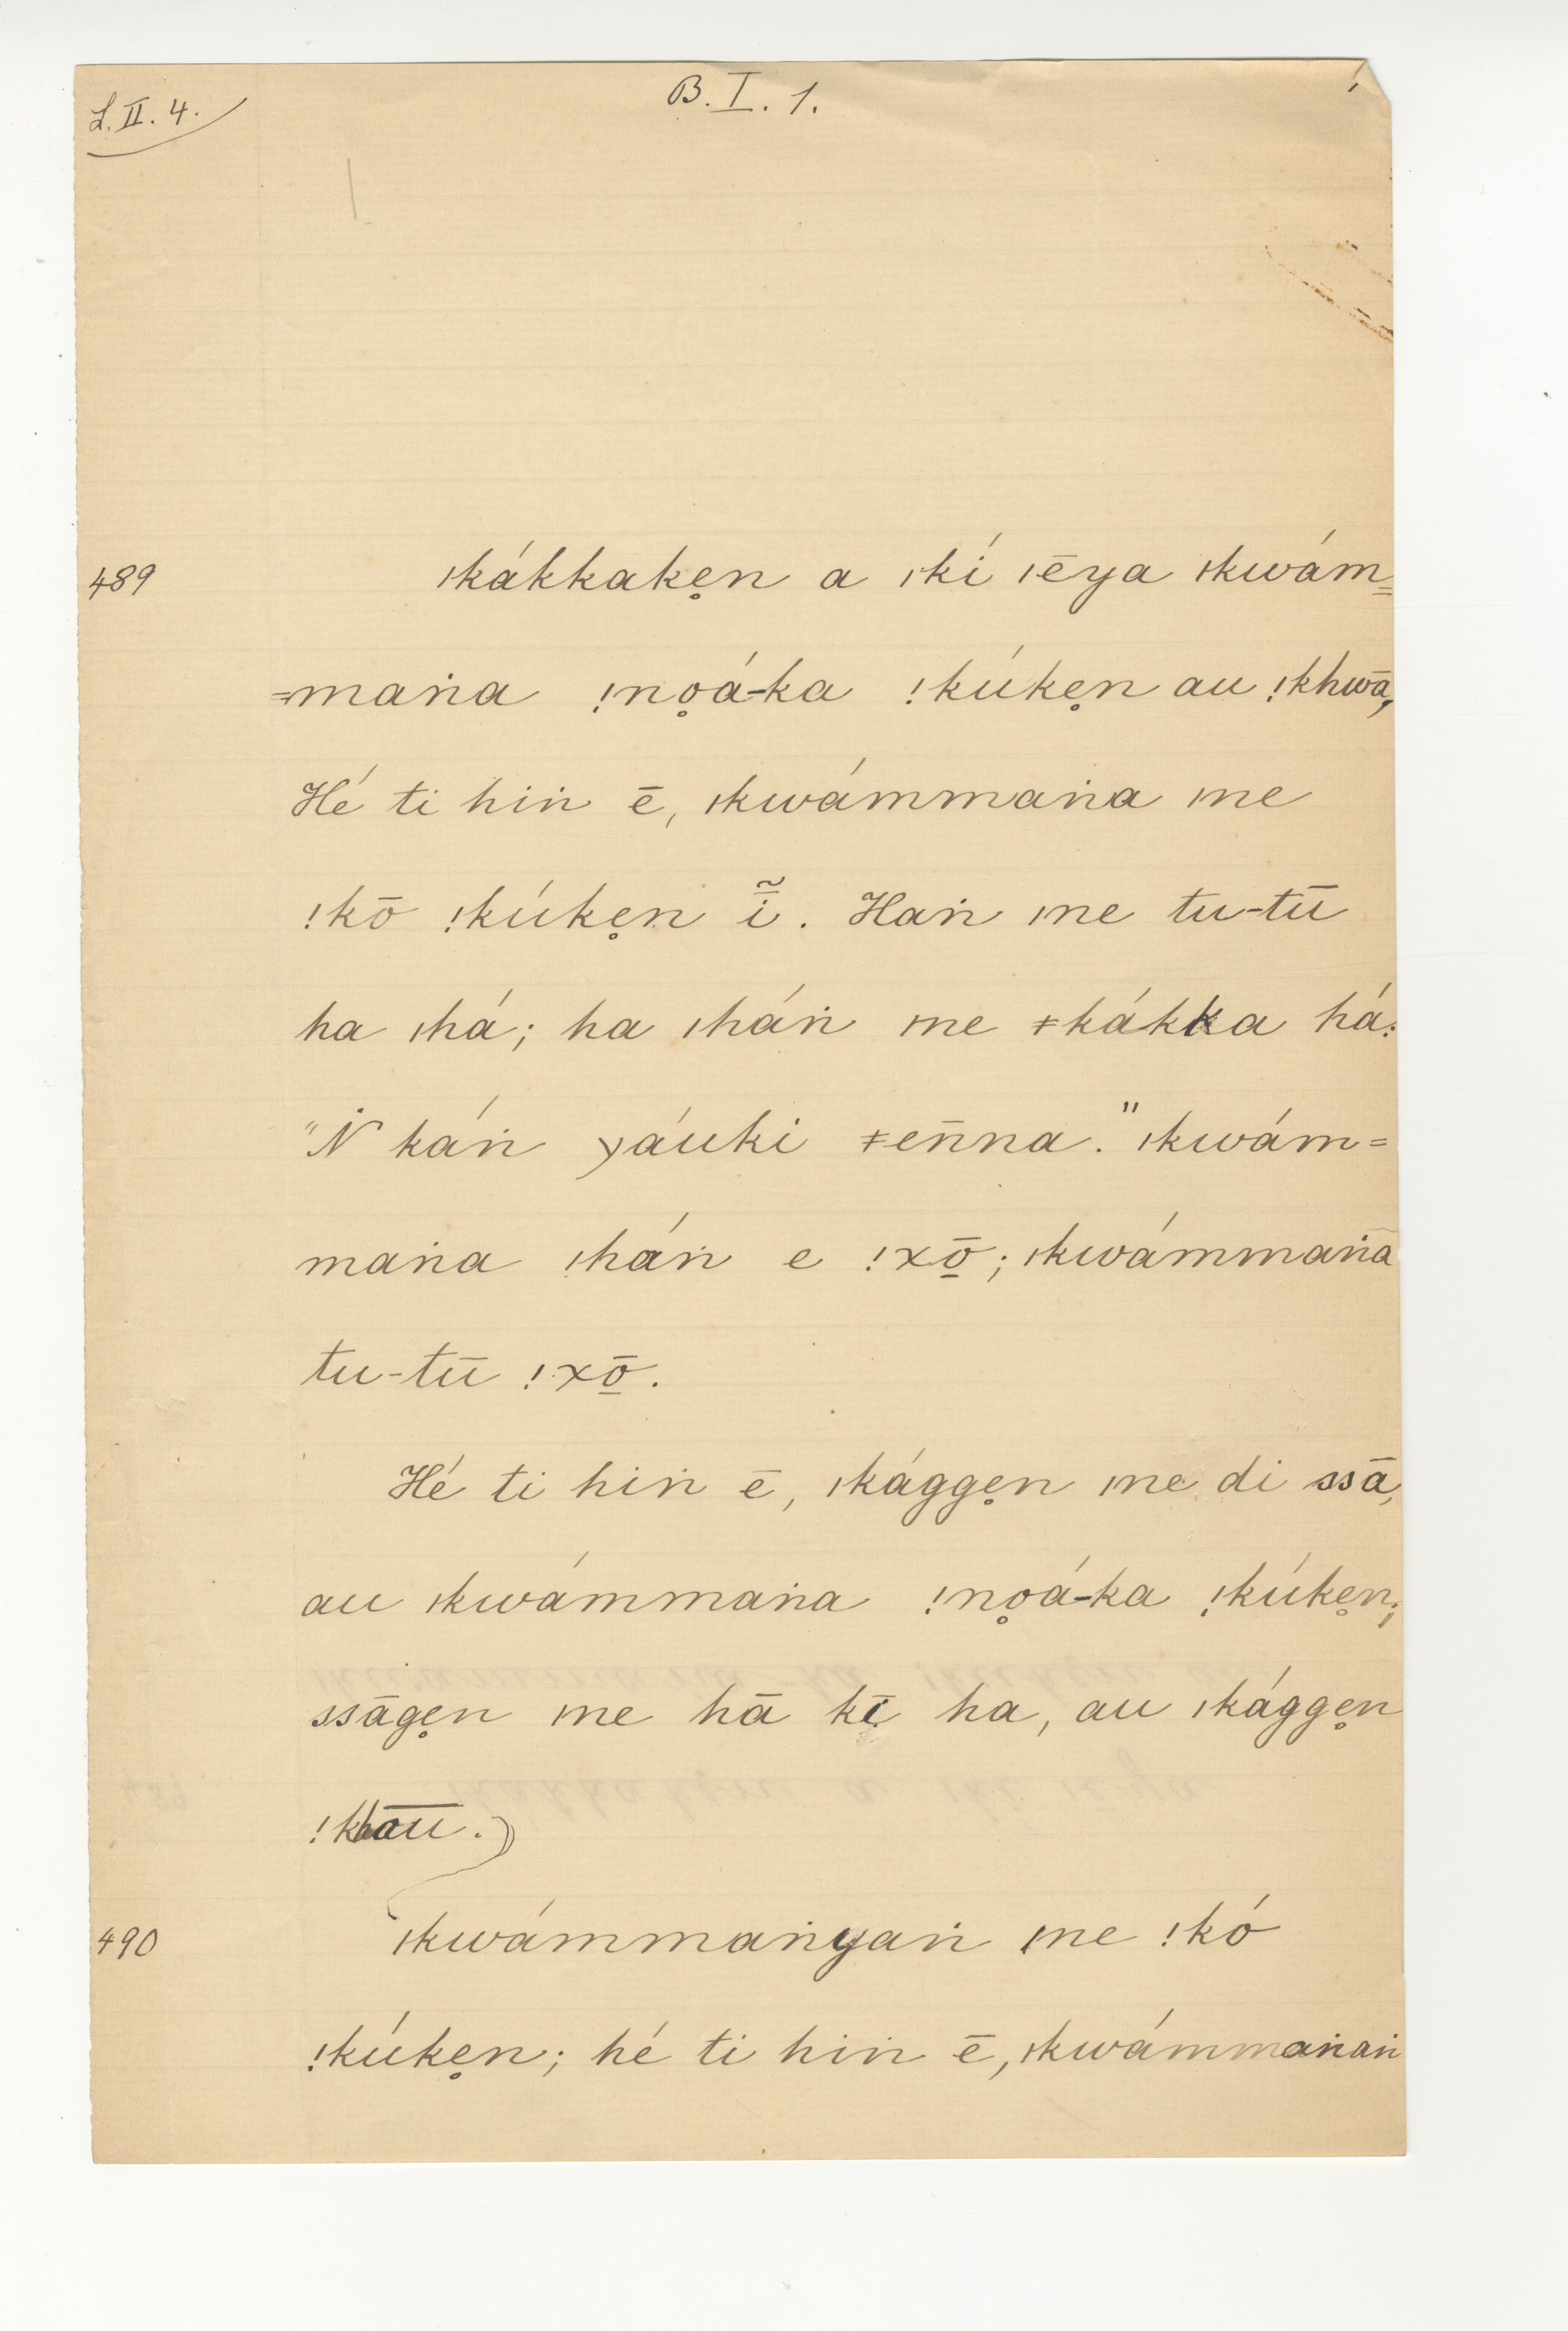 L.II.4.
B.I.1.
1
489
ǀkákkaken̥ a ǀkí ǀēya ǀkwám=
=maṅa ǃno̥á-ka ǃkúken̥ au ǃkhwā,
Hé ti hiṅ ē, ǀkwámmaṅa ǀne
ǃkō ǃkúken̥ ī̃. Haṅ ǀne tu-tū
ha ǀhá; ha ǀháṅ ǀne ǂkákka há:
"Ṅ káṅ yáuki ǂen̄na." ǀkwám=
maṅa ǀháṅ e ǃxō̱; ǀkwámmaṅa
tu-tū ǃxō̱.
Hé ti hiṅ ē, ǀkággen̥ ǀne di ssā,
au ǀkwámmaṅa ǃno̥á-ka ǃkúken̥;
ssāgen̥ ǀne hā kī ha, au ǀkággen̥
ǃkhāū.
490
ǀkwámmaṅyaṅ ǀne ǃkó
ǃkúken̥; hé ti hiṅ ē, ǀkwámmaṅaṅ